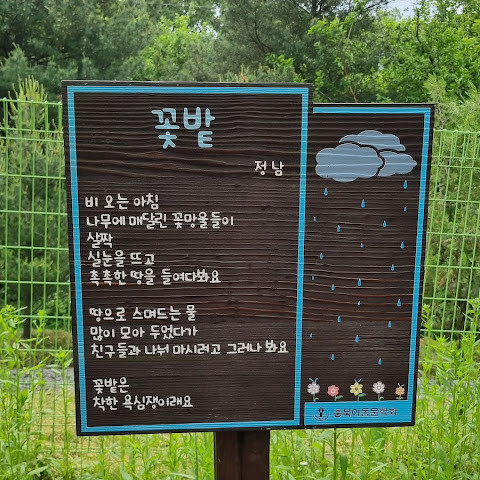 꽃밭
정남
비 오는 아침
나무에 매달린 꽃망울들이
살짝
실눈을 뜨고
촉촉한 땅을 들여다봐요
땅으로 스며드는 물
많이 모아 두었다가
친구들과 나눠 마시려고 그러나 봐요
꽃밭은
착한 욕심쟁이래요
충북아동문학회